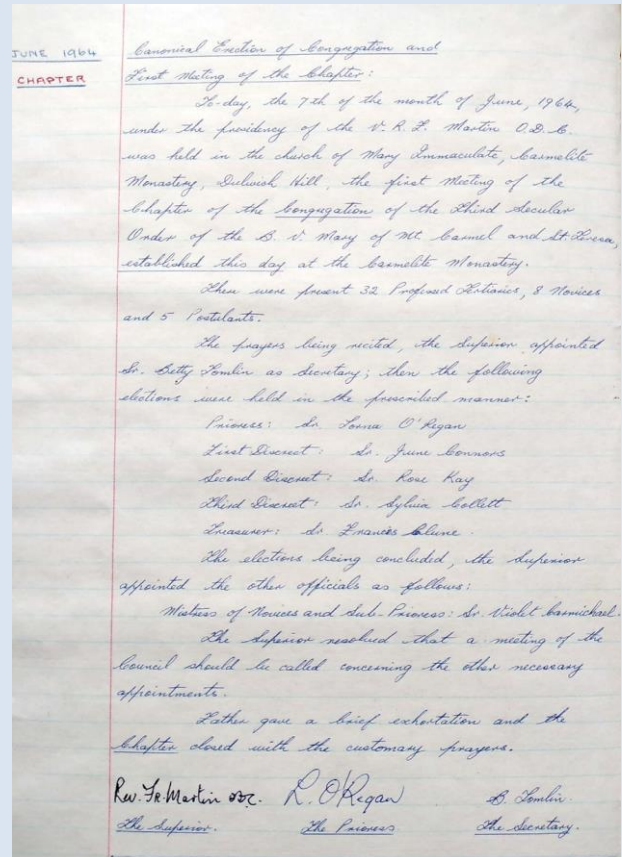 JUNE 1964
CHAPTER
Canonical Erection of Congregation and
First Meeting of the Chapter:
To-day, the 7th of the month of June, 1964,
under the presidency of the V. R. F. Martin O.D.C.
was held in the church of Mary Immaculate, Carmelite
Monastery, Dulwich Hill, the first Meeting of the
Chapter of the Congregation of the Third Secular
Order of the B. V. Mary of Mt. Carmel and St. Teresa,
established this day at the Carmelite Monastery.
There were present 32 Professed Tertiaries, 8 Novices
and 5 Postulants.
The prayers being recited, the Superior appointed
Sr. Betty Tomlin as Secretary; then the following
elections were held in the prescribed manner:
Prioress: Sr Lorna O'Regan
First Discreet: Sr. June Connors
Second Discreet: Sr. Rose Kay
Third Discreet: Sr. Sylvia Collett
Treasurer: Sr. Frances Clune.
The elections being concluded, the Superior
appointed the other officials as follows:
Mistress of Novices and Sub-Prioress: Sr. Violet Carmichael.
The Superior resolved that a meeting of the
Council should be called concerning the other necessary
appointments.
Father gave a brief exhortation and the
Chapter closed with the customary prayers.
Rev. Fr. Martin ODC. L. O'Regan B. Tomlin.
The Superior. The Prioress The Secretary.